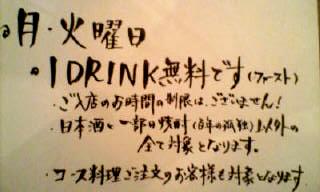 月・火曜日
1DRINK無料です(ファースト)
・ご入店のお時間の制限は、ございません!
・日本酒と一部の焼酎(百年の孤独)以外の
全て対象となります。
・コース料理ご注文のお客様も対象となります